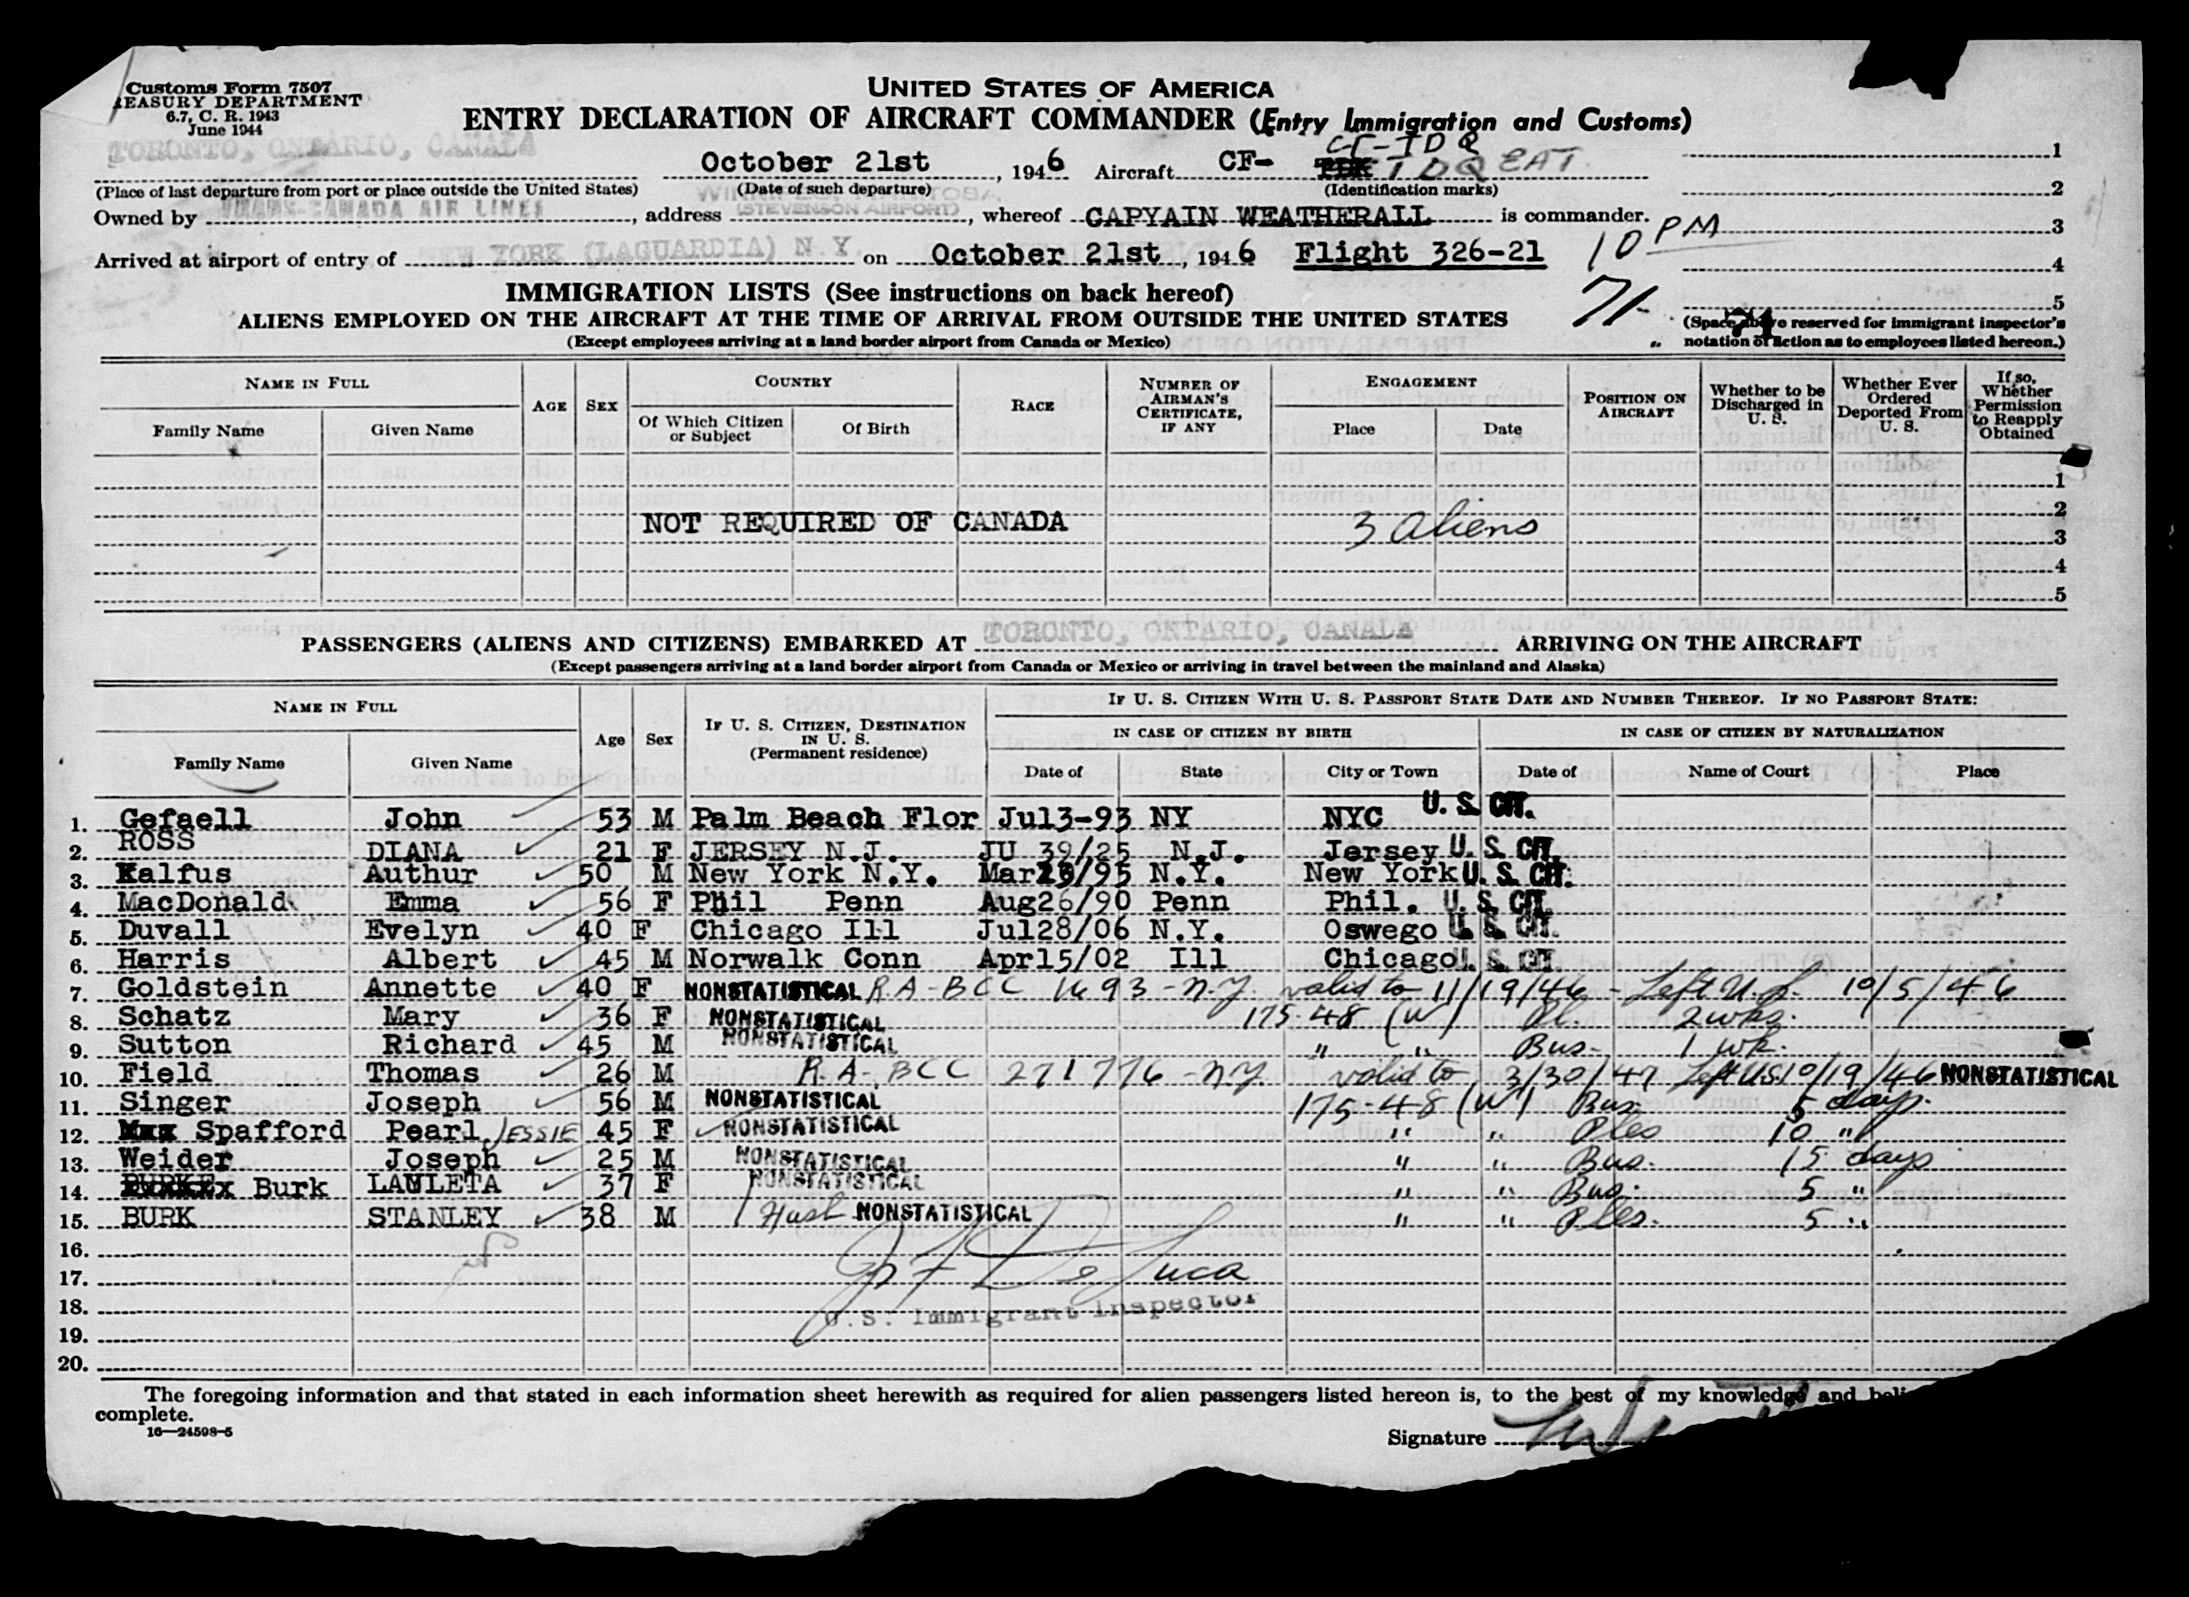 Customs Form 7507
TREASURY DEPARTMENT
6.7, C. R. 1943
June 1944
UNITED STATES OF AMERICA
ENTRY DECLARATION OF AIRCRAFT COMMANDER (Entry Immigration and Customs)
CF-TDQ
TORONTO, ONTARIO, CANADA October 21st, 1946 Aircraft CF- TDQ EAT 1
(Place of last departure from port or place outside the United States) (Date of such departure) (Identification marks) 2
Owned by TRANS-CANADA AIR LINES, address WINNIPEG, MANITOBA (STEVENSON AIRPORT), whereof CAPYAIN WEATHERALL is commander. 3
Arrived at airport of entry of NEW YORK (LAGUARDIA) N.Y. on October 21st, 1946 Flight 326-21 10 PM 4
IMMIGRATION LISTS (See instructions on back hereof) 71 5
ALIENS EMPLOYED ON THE AIRCRAFT AT THE TIME OF ARRIVAL FROM OUTSIDE THE UNITED STATES (Space above reserved for immigrant inspector's
(Except employees arriving at a land border airport from Canada or Mexico) notation of action as to employees listed hereon.)
71
NAME IN FULL AGE SEX COUNTRY RACE NUMBER OF AIRMAN'S CERTIFICATE, IF ANY ENGAGEMENT POSITION ON AIRCRAFT Whether to be Discharged in U. S. Whether Ever Ordered Deported From U. S. If so, Whether Permission to Reapply Obtained
Family Name Given Name Of Which Citizen or Subject Of Birth Place Date
1
NOT REQUIRED OF CANADA 3 aliens 2
3
4
5
PASSENGERS (ALIENS AND CITIZENS) EMBARKED AT TORONTO, ONTARIO, CANADA ARRIVING ON THE AIRCRAFT
(Except passengers arriving at a land border airport from Canada or Mexico or arriving in travel between the mainland and Alaska)
NAME IN FULL Age Sex IF U. S. CITIZEN, DESTINATION IN U. S. (Permanent residence) IF U. S. CITIZEN WITH U. S. PASSPORT STATE DATE AND NUMBER THEREOF. IF NO PASSPORT STATE:
IN CASE OF CITIZEN BY BIRTH IN CASE OF CITIZEN BY NATURALIZATION
Family Name Given Name Date of State City or Town Date of Name of Court Place
1. Gefaell John 53 M Palm Beach Flor Jul3-93 NY NYC U. S. CIT.
2. ROSS DIANA 21 F JERSEY N.J. JU 39/25 N.J. Jersey U. S. CIT.
3. Kalfus Authur 50 M New York N.Y. Mar /95 N.Y. New York U. S. CIT.
4. MacDonald Emma 56 F Phil Penn Aug26/90 Penn Phil. U. S. CIT.
5. Duvall Evelyn 40 F Chicago Ill Jul28/06 N.Y. Oswego U. S. CIT.
6. Harris Albert 45 M Norwalk Conn Apr15/02 Ill Chicago U. S. CIT.
7. Goldstein Annette 40 F NONSTATISTICAL R.A-BCC 1693-N.Y. valid to 11/19/46 - Left U.S. 10/5/46
8. Schatz Mary 36 F NONSTATISTICAL 175-48 (W) Pl. 2 wks.
9. Sutton Richard 45 M NONSTATISTICAL " " Bus- 1 wk.
10. Field Thomas 26 M R.A-BCC 271776-N.Y. valid to 3/30/47 Left US 10/19/46 NONSTATISTICAL
11. Singer Joseph 56 M NONSTATISTICAL 175-48 (W) Bus 5 days.
12. Mxx Spafford Pearl JESSIE 45 F NONSTATISTICAL " " Ples 10 "
13. Weider Joseph 25 M NONSTATISTICAL " " Bus. 15 days
14. Burk LAULETA 37 F NONSTATISTICAL " " Bus. 5 "
15. BURK STANLEY 38 M Husb NONSTATISTICAL " " Ples. 5 "
16.
17. De Luca
18. U.S. Immigrant Inspector
19.
20.
The foregoing information and that stated in each information sheet herewith as required for alien passengers listed hereon is, to the best of my knowledge and
complete.
16—24598-5
Signature